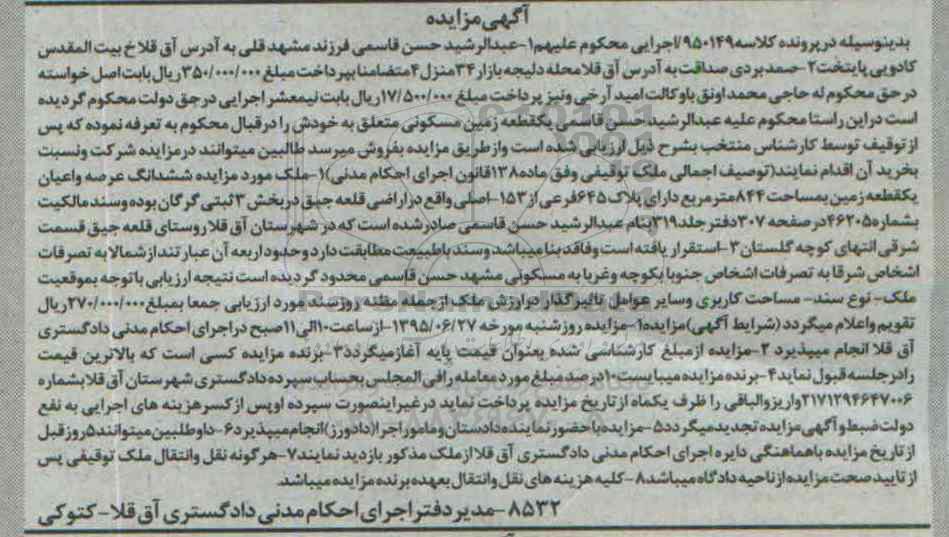 آگهی مزایده
بدینوسیله در پرونده کلاسه ۹۵۰۱۴۹/اجرایی محکوم علیهم ۱-عبدالرشید حسن قاسمی فرزند مشهد قلی به آدرس آق قلا خ بیت المقدس
کادویی پایتخت ۲-صمد بردی صداقت به آدرس آق قلا محله دلیجه بازار ۳۴ منزل ۴ متضامنا بپرداخت مبلغ ۳۵۰/۰۰۰/۰۰۰ریال بابت اصل خواسته
در حق محکوم له حاجی محمد اونق باوکالت امید آرخی ونیز پرداخت مبلغ ۱۷/۵۰۰/۰۰۰ریال بابت نیمعشر اجرایی در حق دولت محکوم گردیده
است در این راستا محکوم علیه عبدالرشید حسن قاسمی یکقطعه زمین مسکونی متعلق به خودش را در قبال محکوم به تعرفه نموده که پس
از توقیف توسط کارشناس منتخب بشرح ذیل ارزیابی شده است و از طریق مزایده بفروش میرسد طالبین میتوانند در مزایده شرکت ونسبت
بخرید آن اقدام نمایند(توصیف اجمالی ملک توقیفی وفق ماده ۱۳۸قانون اجرای احکام مدنی)۱-ملک مورد مزایده ششدانگ عرصه واعیان
یکقطعه زمین بمساحت ۸۴۴متر مربع دارای پلاک ۶۴۵فرعی از ۱۵۳-اصلی واقع در اراضی قلعه جیق در بخش ۳ ثبتی گرگان بوده وسند مالکیت
بشماره ۴۶۲۰۵در صفحه ۳۰۷ دفتر جلد ۳۱۹ بنام عبدالرشید حسن قاسمی صادر شده است که در شهرستان آق قلا روستای قلعه جیق قسمت
شرقی انتهای کوچه گلستان ۳-استقرار یافته است وفاقد بنا میباشد وسند باطبیعت مطابقت دارد وحدود اربعه آن عبارتند از شمالا به تصرفات
اشخاص شرقا به تصرفات اشخاص جنوبا بکوچه وغربا به مسکونی مشهد حسن قاسمی محدود گردیده است نتیجه ارزیابی باتوجه بموقعیت
ملک- نوع سند- مساحت کاربری وسایر عوامل تاثیرگذار در ارزش ملک از جمله مظنه روز سند مورد ارزیابی جمعا بمبلغ ۲۷۰/۰۰۰/۰۰۰ریال
تقویم واعلام میگردد (شرایط آگهی)مزایده ۱-مزایده روز شنبه مورخه ۱۳۹۵/۰۶/۲۷-از ساعت ۱۰الی ۱۱صبح در اجرای احکام مدنی دادگستری
آق قلا انجام میپذیرد ۲-مزایده از مبلغ کارشناسی شده بعنوان قیمت پایه آغاز میگردد ۳-برنده مزایده کسی است که بالاترین قیمت
را در جلسه قبول نماید ۴-برنده مزایده میبایست ۱۰درصد مبلغ مورد معامله را فی المجلس بحساب سپرده دادگستری شهرستان آق قلا بشماره
۲۱۷۱۲۹۴۶۴۷۰۰۶واریز والباقی را ظرف یکماه از تاریخ مزایده پرداخت نماید در غیر اینصورت سپرده او پس از کسر هزینه های اجرایی به نفع
دولت ضبط و آگهی مزایده تجدید میگردد ۵-مزایده با حضور نماینده دادستان و مامور اجرا(دادورز)انجام میپذیرد ۶-داوطلبین میتوانند ۵روز قبل
از تاریخ مزایده باهماهنگی دایره اجرای احکام مدنی دادگستری آق قلا از ملک مذکور بازدید نمایند ۷-هرگونه نقل وانتقال ملک توقیفی پس
از تایید صحت مزایده از ناحیه دادگاه میباشد ۸-کلیه هزینه های نقل وانتقال بعهده برنده مزایده میباشد.
۸۵۳۲-مدیر دفتر اجرای احکام مدنی دادگستری آق قلا-کتوکی